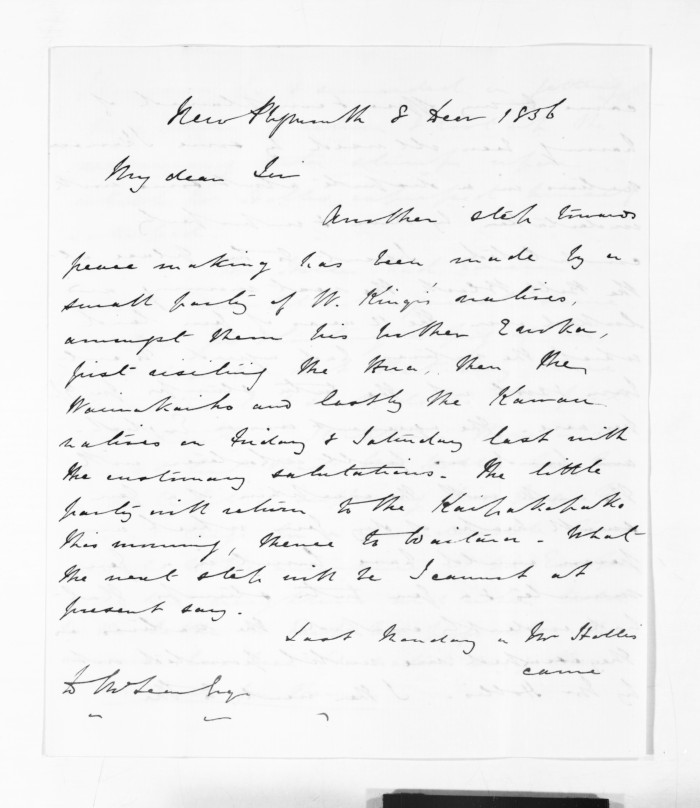 New Plymouth 8 Decr 1856
My dear Sir
Another step towards
peace making has been made by a
small party of W. King's natives,
amongst them his brother Enoka,
first visiting the Hua, then the
Waiwakaiho and lastly the Kawau
natives on Friday & Saturday last with
the customary salutations. The little
party will return to the Kaipakopako
this morning, thence to Waitara. What
the next step will be I cannot at
present say.
Last Monday a Mr Hollis
came
D McLean Esqr